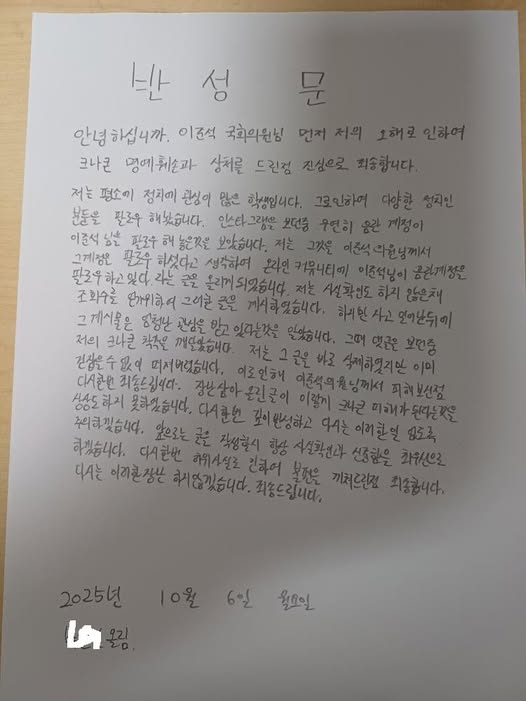 반 성 문
안녕하십니까. 이준석 국회의원님 먼저 저의 오해로 인하여
크나큰 명예훼손과 상처를 드린점 진심으로 죄송합니다.
저는 평소에 정치에 관심이 많은 학생입니다. 그로인하여 다양한 정치인
분들을 팔로우 해놨습니다. 인스타그램을 보던중 우연히 음란 계정이
이준석 님을 팔로우 해 놓은것을 보았습니다. 저는 그것을 이준석 의원님께서
그계정을 팔로우 하셨다고 생각하여 온라인 커뮤니티에 이준석님이 음란계정을
팔로우 하고 있다. 라는 글을 올리게 되었습니다. 저는 사실확인도 하지 않은채
조회수를 얻기위하여 그러한 글을 게시하였습니다. 하지만 사고 일어난뒤에
그 게시물은 엄청난 관심을 받고 있다는것을 알았습니다. 그때 댓글을 보던중
저의 크나큰 착각을 깨달았습니다. 저는 그 글을 바로 삭제하였지만 이미
걷잡을수 없이 퍼져버렸습니다. 이로인해 이준석의원님께서 피해보신점
다시한번 죄송드립니다. 장난삼아 올린글이 이렇게 크나큰 피해가 된다는것을
상상도 하지 못하였습니다. 다시한번 깊이반성하고 다시는 이러한일 없도록
주의하겠습니다. 앞으로는 글을 작성할시 항상 사실확인과 신중함을 최우선으로
하겠습니다. 다시한번 허위사실로 인하여 불편을 끼쳐드린점 죄송합니다.
다시는 이러한장난 하지않겠습니다. 죄송드립니다.
2025년 10월 6일 월요일
올림.